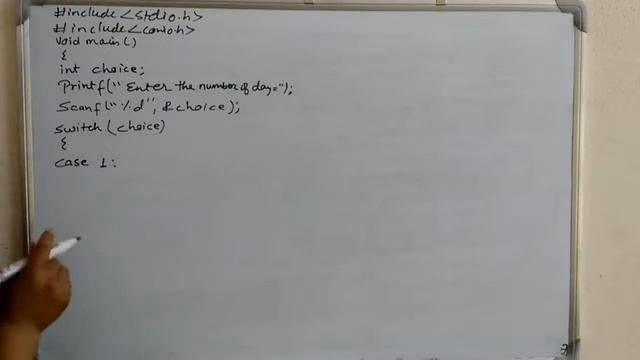 #include<stdio.h>
#include<conio.h>
void main()
{
int choice;
Printf("Enter the number of day=");
Scanf("%d", &choice);
switch(choice)
{
case 1: